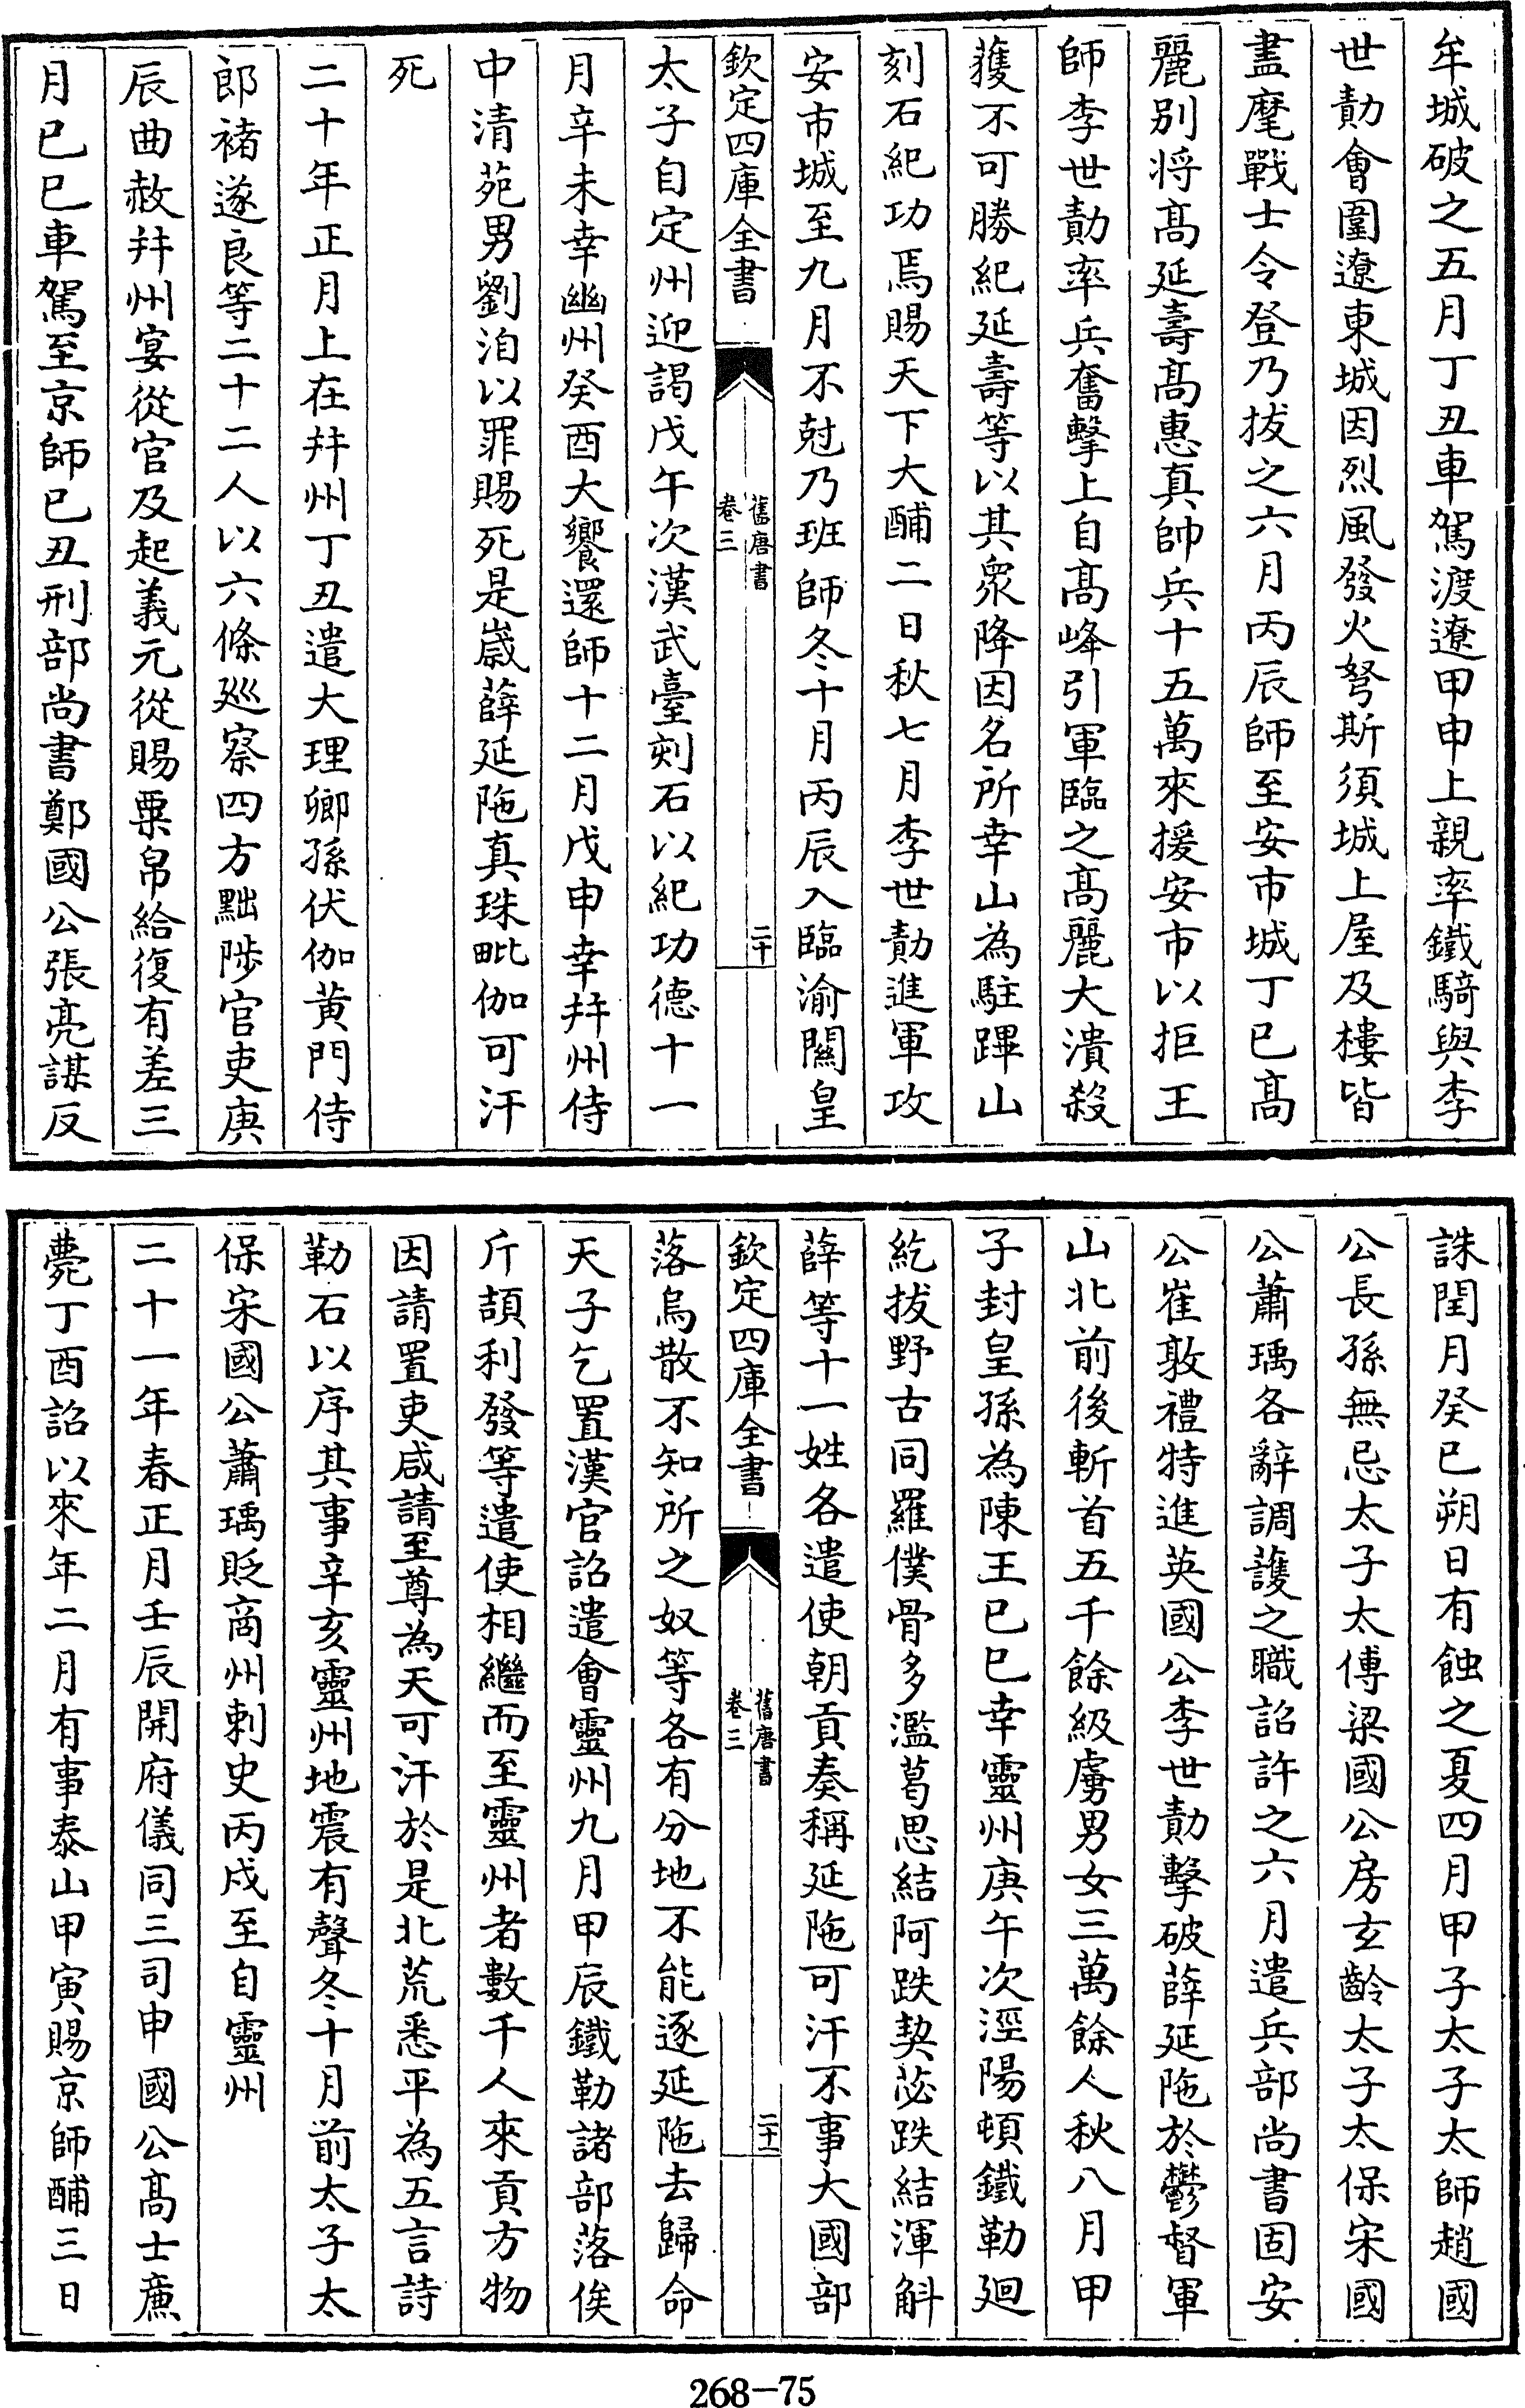 牟城破之五月丁丑車駕渡遼甲申上親率鐵騎與李
世勣會圍遼東城因烈風發火弩斯須城上屋及樓皆
盡麾戰士令登乃拔之六月丙辰師至安市城丁巳髙
麗别将髙延壽髙惠真帥兵十五萬來援安市以拒王
師李世勣率兵奮擊上自髙峰引軍臨之髙麗大潰殺
獲不可勝紀延壽等以其衆降因名所幸山為駐蹕山
刻石紀功焉賜天下大酺二日秋七月李世勣進軍攻
安市城至九月不尅乃班師冬十月丙辰入臨渝關皇
欽定四庫全書
舊唐書
卷三
二十
太子自定州迎謁戊午次漢武臺刻石以紀功德十一
月辛未幸幽州癸酉大饗還師十二月戊申幸幷州侍
中清苑男劉洎以罪賜死是歲薛延陁真珠毗伽可汗
死
二十年正月上在幷州丁丑遣大理卿孫伏伽黄門侍
郎褚遂良等二十二人以六條廵察四方黜陟官吏庚
辰曲赦幷州宴從官及起義元從賜粟帛給復有差三
月巳巳車駕至京師已丑刑部尚書鄭國公張亮謀反
誅閏月癸巳朔日有蝕之夏四月甲子太子太師趙國
公長孫無忌太子太傅梁國公房玄齡太子太保宋國
公蕭瑀各辭調護之職詔許之六月遣兵部尚書固安
公崔敦禮特進英國公李世勣擊破薛延陁於鬱督軍
山北前後斬首五千餘級虜男女三萬餘人秋八月甲
子封皇孫為陳王巳巳幸靈州庚午次涇陽頓鐵勒廻
紇拔野古同羅僕骨多濫葛思結阿跌契苾跌結渾斛
薛等十一姓各遣使朝貢奏稱延陁可汗不事大國部
欽定四庫全書
舊唐書
卷三
二十一
落烏散不知所之奴等各有分地不能逐延陁去歸命
天子乞置漢官詔遣會靈州九月甲辰鐵勒諸部落俟
斤頡利發等遣使相繼而至靈州者數千人來貢方物
因請置吏咸請至尊為天可汗於是北荒悉平為五言詩
勒石以序其事辛亥靈州地震有聲冬十月前太子太
保宋國公蕭瑀貶商州刺史丙戌至自靈州
二十一年春正月壬辰開府儀同三司申國公髙士廉
薨丁酉詔以來年二月有事泰山甲寅賜京師酺三日
268-75